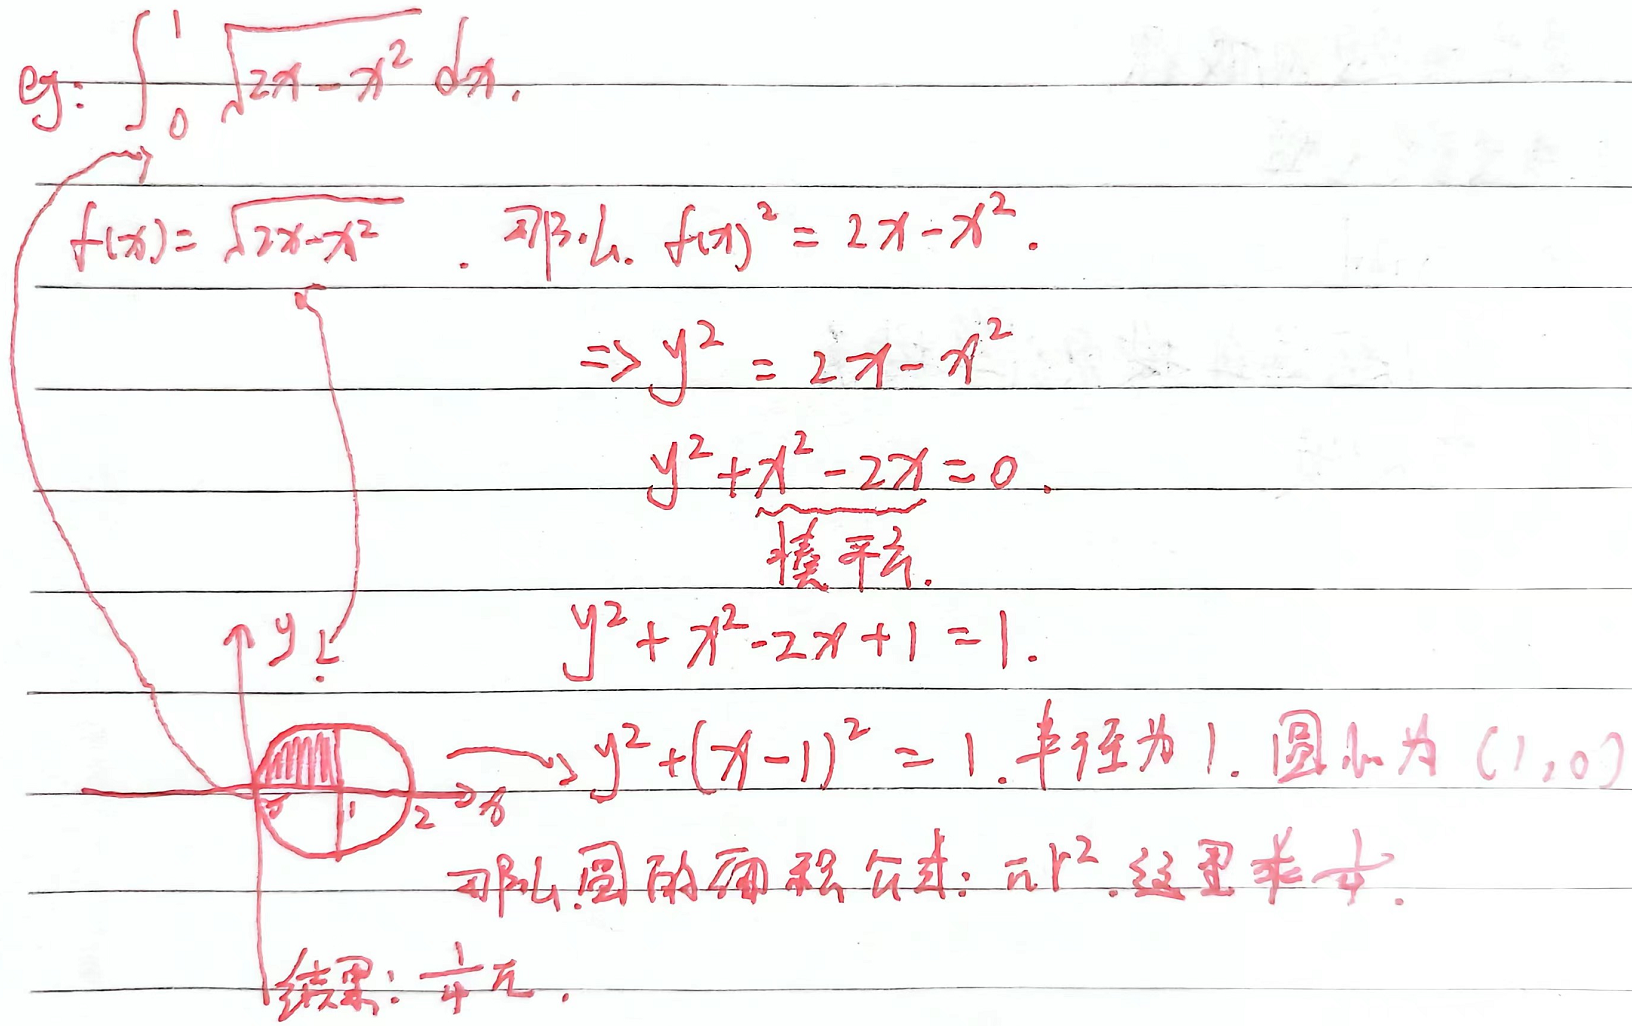 eg: ∫₀¹ √(2x-x²) dx.
f(x)=√(2x-x²) . 那么. f(x)² = 2x-x².
=> y² = 2x-x²
y²+x²-2x=0.
凑平方.
y²+x²-2x+1=1.
y
y²+(x-1)²=1. 半径为1. 圆心为(1,0)
0 1 2 x
那么圆的面积公式: πr². 这里求1/4.
结果: 1/4 π.